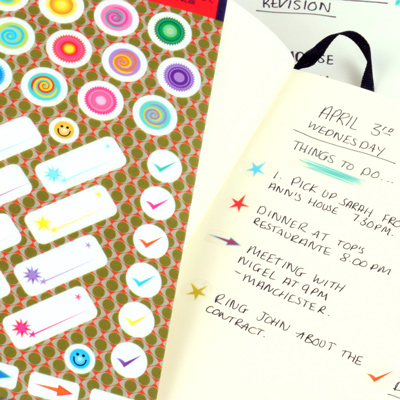 REVISION
APRIL 3RD
WEDNESDAY
THINGS TO DO...
1. PICK UP SARAH FRO
ANN'S HOUSE 7.30PM.
DINNER AT TOP'S
RESTAURANTE 8:00 PM
MEETING WITH
NIGEL AT 9PM
- MANCHESTER.
RING JOHN ABOUT THE
CONTRACT.